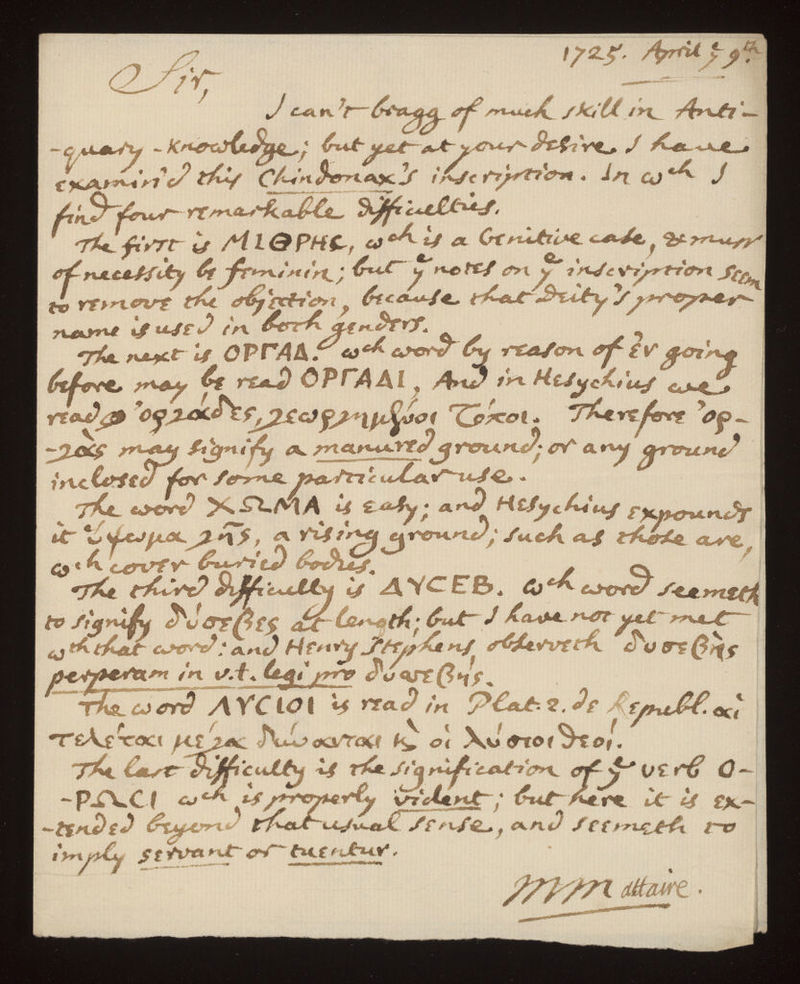 1725. April yͤ 9th.
Sir,
I can't bragg of much skill in Anti-
-quary-knowledge; but yet at your desire I have
examin'd this Chindonax's inscription. In wch I
find four remarkable difficulties.
The first is ΜΙΘΡΗϹ, wch is a Genitive case, & must
of necessity be feminin; but yͤ notes on yͤ inscription seem
to remove the objection, because that Deity's proper
name is used in both genders.
The next is ΟΡΓΑΔ. wch word by reason of ἐν going
before may be read ΟΡΓΑΔΙ, And in Hesychius we
read ὀργάδες, γεωργημένοι τόποι. Therefore ὀρ-
-γὰς may signify a manured ground; or any ground
inclosed for some particular use.
The word ΧΩΜΑ is easy; and Hesychius expounds
it ὕψωμα γῆς, a rising ground; such as those are,
wch cover buried bodies.
The third difficulty is ΔΥϹΕΒ. wch word seemeth
to signify δύσεβες at length; but I have not yet met
wth that word: and Henry Stephens observeth δυσεβὴς
perperam in v.t. legi pro δυσσεβής.
The word ΛΥϹΙΟΙ is read in Plat. 2. de Republ. αἱ
τελέται μέγα δύνανται ϗ οἱ λύσιοι θεοί.
The last difficulty is the signification of yͤ verb Ο-
-ΡΩϹΙ wch is properly vident; but here it is ex-
-tended beyond that usual sense, and seemeth to
imply servant or tuentur.
MMattaire.